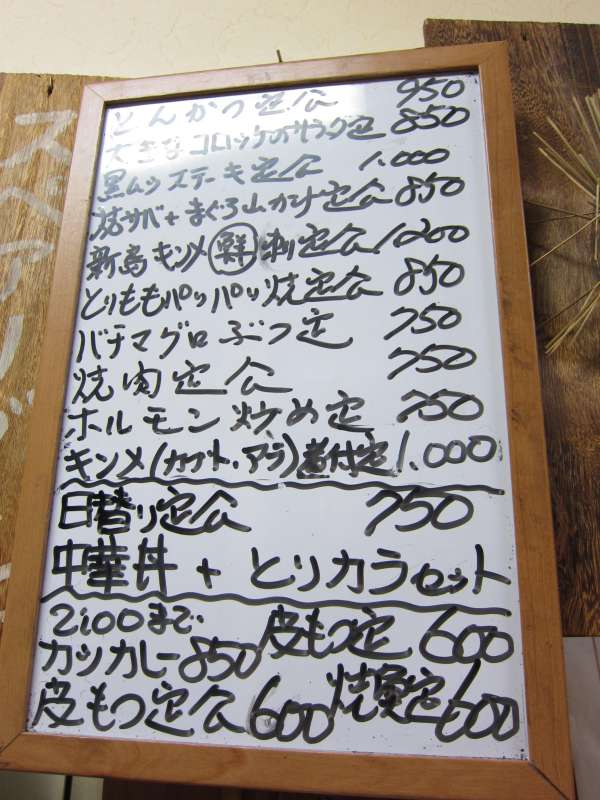 とんかつ定公 950
大きなコロッケのサラダ定 850
黒ムツステーキ定公 1.000
サバ+まぐろ山かけ定公 850
新島キンメ 鮮 刺定公 1200
とりももパリパリ焼定公 850
バチマグロぶつ定 750
焼肉定公 750
ホルモン炒め定 750
キンメ(カブト・アラ)煮付定 1.000
日替り定公 750
中華丼 + とりカラセット
2100まで
皮もつ定 600
カツカレー 850
皮もつ定公 600
定 600